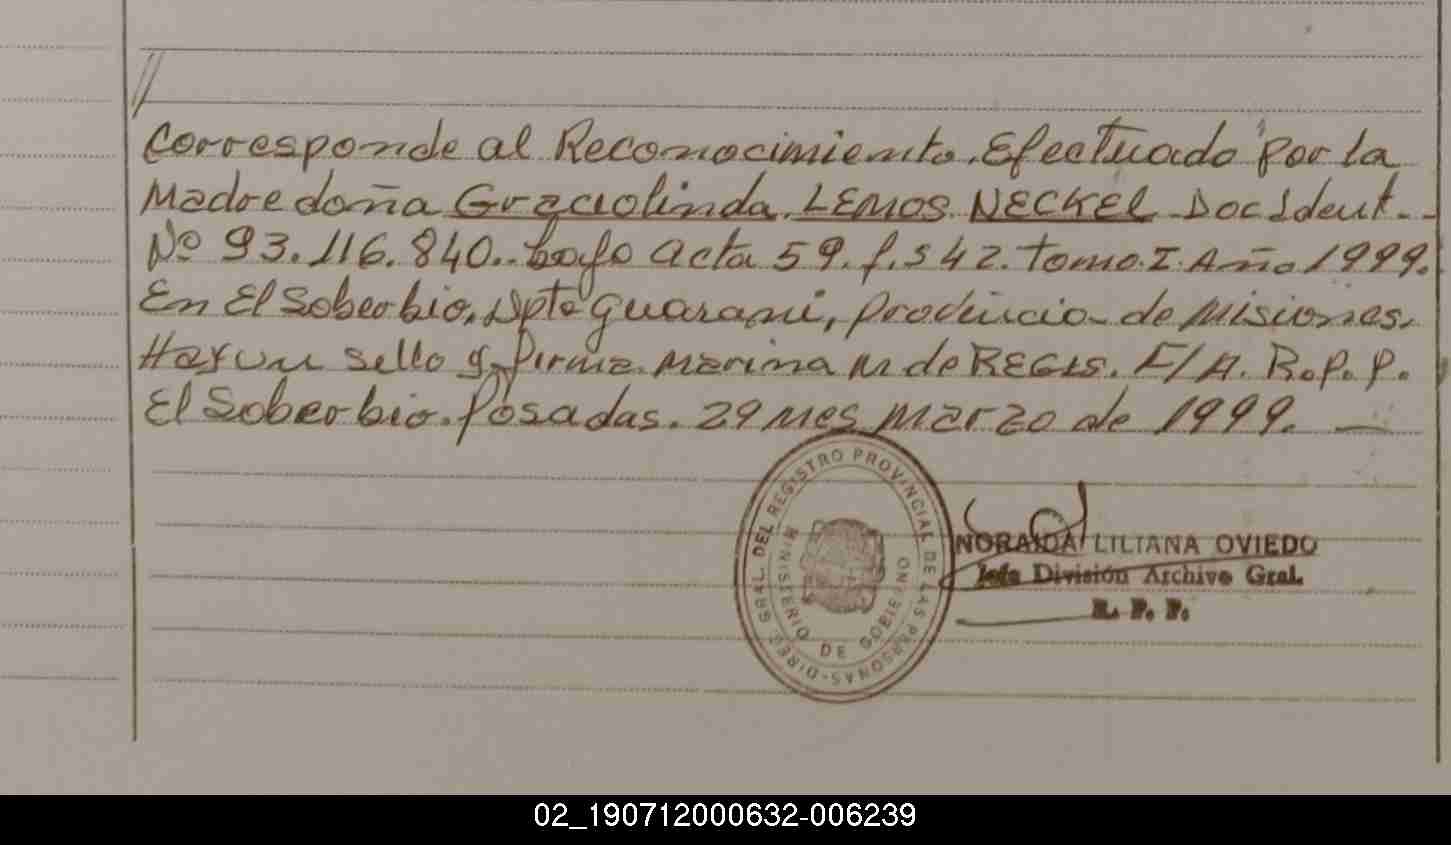 //
Corresponde al Reconocimiento. Efectuado por la
Madre doña Graciolinda LEMOS NECKEL Doc Ident..
Nº 93.116.840.. bajo acta 59. f.s 42. Tomo. I. Año 1999.
En El Soberbio, Dpto Guarani, Provincia de Misiones.
Hay un sello y firma. Marina M de REGIS. E/A. R.P.P.
El Soberbio. Posadas. 29 Mes Marzo de 1999. —
DIREC. GRAL. DEL REGISTRO PROVINCIAL DE LAS PERSONAS-
MINISTERIO DE GOBIERNO
NORAIDA LILIANA OVIEDO
Jefa División Archivo Gral.
R. P. P.
02_190712000632-006239